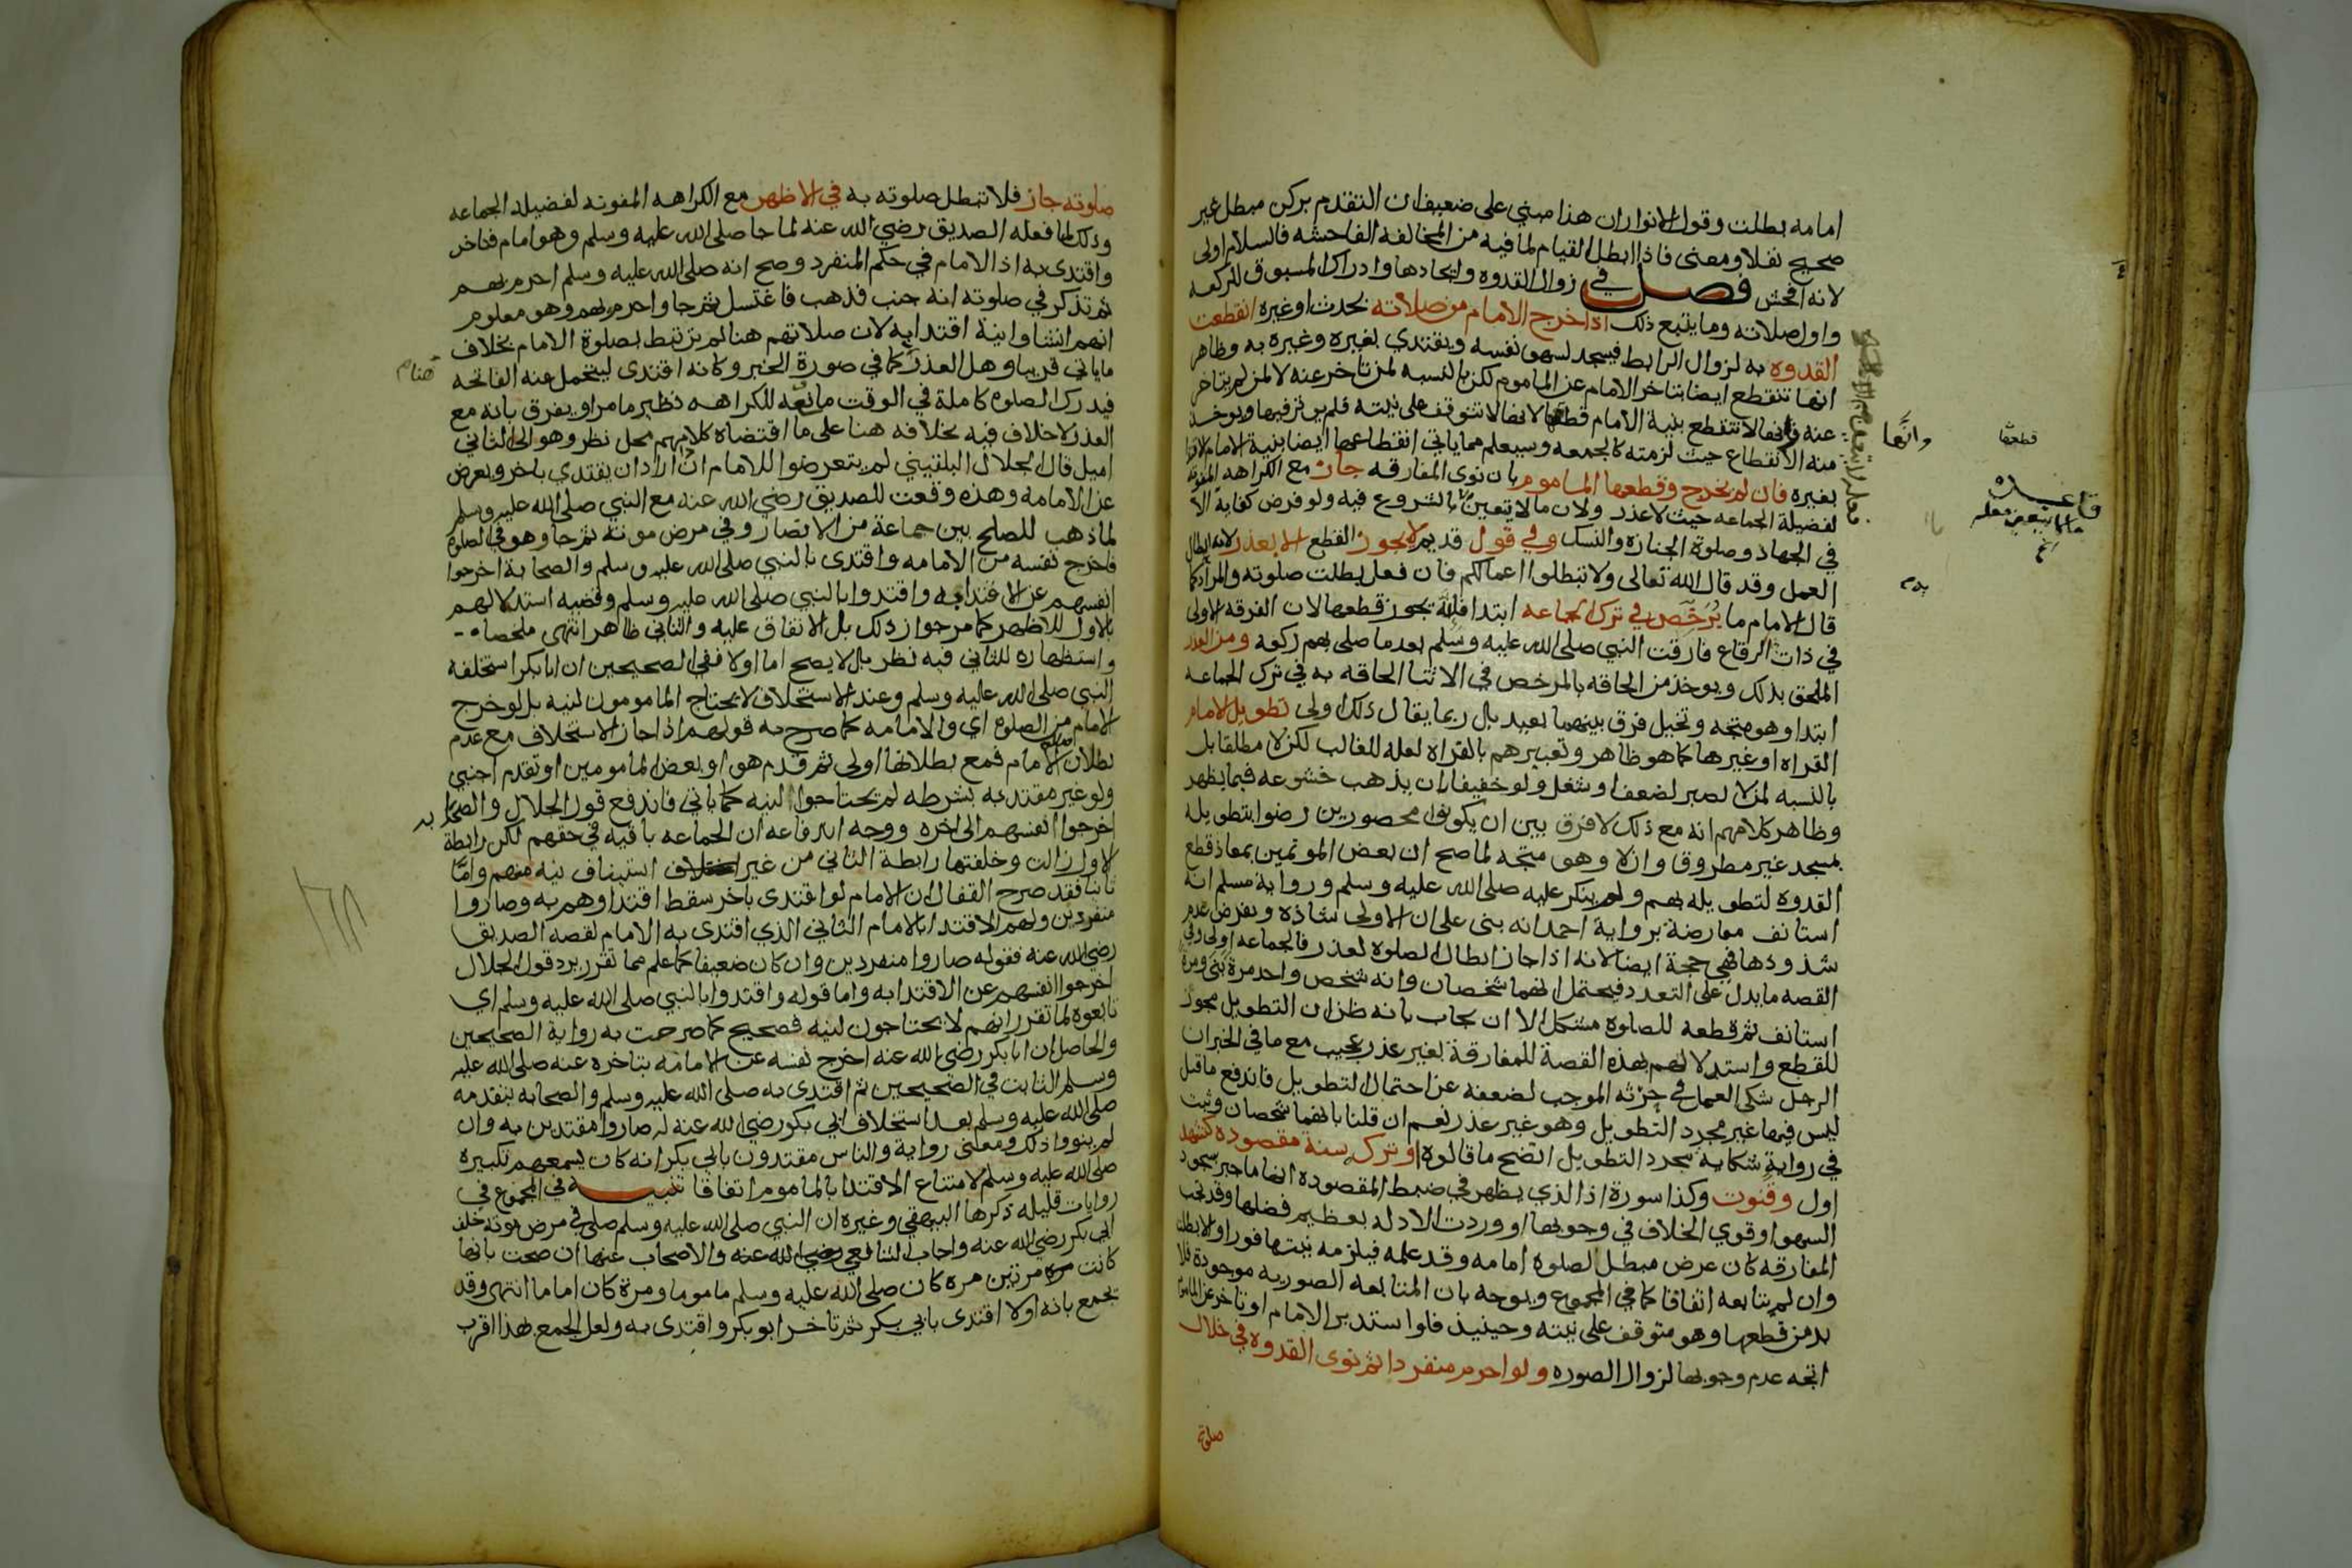 امامه بطلت وقول الانوار ان هذا مبني على ضعيف ان التقدم بركن مبطل غير
صحيح نقلا ومعنى فاذا ابطل القيام لما فيه من المخالفه الفاحشه فالسلام اولى
لانه افحش فصل في زوال القدوه وايجادها وادراك المسبوق للركعه
واول صلاته وما يتبع ذلك اذا خرج الامام من صلاته بحدث او غيره انقطعت
القدوه به لزوال الرابط فيسجد لسهو نفسه ويقتدي بغيره وغيره به وظاهر
انها تنقطع ايضا بتاخر الامام عن الماموم لكن بالنسبه لمن تاخر عنه لا لمن لم يتاخر
عنه وانها لا تنقطع بنية الامام قطعها لانها لا تتوقف على نيته فلم يوثر فيها ويوخذ
منه الانقطاع حيث لزمته كالجمعه وسيعلم مما ياتي انقطاعها ايضا بنية الامام الاقتدا
بغيره فان لم يخرج وقطعها الماموم بان نوى المفارقه جاز مع الكراهه المفوته
لفضيلة الجماعه حيث لا عذر ولان ما لا يتعين لا بالشروع فيه ولو فرض كفاية الا
في الجهاد وصلوة الجنازه والنسك وفي قول قديم لا يجوز القطع الا بعذر لانه ابطال
العمل وقد قال الله تعالى ولا تبطلوا اعمالكم فان فعل بطلت صلوته والمراد كما
قال الامام ما يرخص في ترك الجماعه ابتدا فانه يجوز قطعها لان الفرقه الاولى
في ذات الرقاع فارقت النبي صلى الله عليه وسلم بعد ما صلى بهم ركعه ومن العذر
الملحق بذلك ويوخذ من الحاقه بالمرخص في الاثنا الحاقه به في ترك الجماعه
ابتدا وهو متجه وتخيل فرق بينهما بعيد بل ربما يقال ذلك اولى تطويل الامام
القراه او غيرها كما هو ظاهر وتعبيرهم بالقراه لعله للغالب لكن لا مطلقا بل
بالنسبه لمن لا يصبر لضعف او شغل ولو خفيفا ان يذهب خشوعه فيما يظهر
وظاهر كلامهم انه مع ذلك لا فرق بين ان يكونوا محصورين رضوا بتطويله
بمسجد غير مطروق وان لا وهو متجه لما صح ان بعض الموتمين بمعاذ قطع
القدوه لتطويله بهم ولم ينكر عليه صلى الله عليه وسلم ورواية مسلم انه
استانف معارضة برواية احمد انه بنى على ان الاولى شاذه وبفرض عدم
شذوذها فهي حجة ايضا لانه اذا جاز ابطال الصلوة لعذر فالجماعه اولى وفي
القصه ما يدل على التعدد فيحتمل انهما شخصان وانه شخص واحد مرة بنى ومرة
استانف ثم قطعه للصلوة مشكل الا ان يجاب بانه ظن ان التطويل مجوز
للقطع واستدلالهم بهذه القصة للمفارقة بغير عذر عجيب مع ما في الخبر ان
الرجل شكى العمل في حرثه الموجب لضعفه عن احتمال التطويل فاندفع ما قيل
ليس فيها غير مجرد التطويل وهو غير عذر نعم ان قلنا بانهما شخصان وثبت
في رواية شكاية بمجرد التطويل اتضح ما قالوه او ترك سنة مقصوده كتشهد
اول وقنوت وكذا سورة اذ الذي يظهر في ضبط المقصوده انها ما جبر بسجود
السهو او قوي الخلاف في وجوبها او وردت الادلة بعظيم فضلها وقد تجب
المفارقه كان عرض مبطل لصلوة امامه وقد علمه فيلزمه نيتها فورا والا بطلت
وان لم يتابعه اتفاقا كما في المجموع ويوجه بان المتابعه الصوريه موجودة فلا
بد من قطعها وهو متوقف على نيته وحينيذ فلو استدبر الامام او تاخر عن الماموم
اتجه عدم وجوبها لزوال الصوره ولو احرم منفردا ثم نوى القدوه في خلال
صلوته
وانها
قطعها
قاعده
ما لا يتعين
صلوته جاز فلا تبطل صلوته به في الاظهر مع الكراهه المفوته لفضيله الجماعه
وذلك لما فعله الصديق رضي الله عنه لما جا صلى الله عليه وسلم وهو امام فتاخر
واقتدى به اذ الامام في حكم المنفرد وصح انه صلى الله عليه وسلم احرم بهم
ثم تذكر في صلوته انه جنب فذهب فاغتسل ثم جا واحرم بهم وهو معلوم
انهم انشاوا نية اقتدا به لان صلاتهم هنا لم ترتبط بصلوة الامام بخلاف
ما ياتي قريبا وهل العذر كما في صورة الخبر وكانه اقتدى ليتحمل عنه الفاتحه
فيدرك الصلوة كاملة في الوقت مانعه للكراهه نظير ما مر او يفرق بانه مع
العذر لا خلاف فيه بخلافه هنا على ما اقتضاه كلامهم محل نظر وهو الى الثاني
اميل قال الجلال البلقيني لم يتعرضوا للامام ان اراد ان يقتدي باخر ويعرض
عن الامامه وهذه وقعت للصديق رضي الله عنه مع النبي صلى الله عليه وسلم
لما ذهب للصلح بين جماعة من الانصار وفي مرض موته ثم جا وهو في الصلوة
فاخرج نفسه من الامامه واقتدى بالنبي صلى الله عليه وسلم والصحابة اخرجوا
انفسهم عن الاقتدا به واقتدوا بالنبي صلى الله عليه وسلم وقضيه استدلالهم
بالاول للاظهر كما مر جواز ذلك بل الاتفاق عليه والثاني ظاهر انتهى ملخصا
واستظهاره للثاني فيه نظر بل لا يصح اما اولا ففي الصحيحين ان ابا بكر استخلفه
النبي صلى الله عليه وسلم وعند الاستخلاف لا يحتاج المامومون لنيه بل لو خرج
الامام من الصلوة اي والامامه كما صرح به قولهم اذا جاز الاستخلاف مع عدم
بطلان صلاة الامام فمع بطلانها اولى ثم قدم هو او بعض المامومين او تقدم اجنبي
ولو غير مقتد به بشرطه لم يحتاجوا لنيه كما ياتي فاندفع قول الجلال والصحابه
اخرجوا انفسهم الى اخره ووجه اندفاعه ان الجماعه باقيه في حقهم لكن رابطة
الاول زالت وخلفتها رابطة الثاني من غير استيناف نيه منهم واما
ثانيا فقد صرح القفال ان الامام لو اقتدى باخر سقط اقتداوهم به وصاروا
منفردين ولهم الاقتدا بالامام الثاني الذي اقتدى به الامام لقصه الصديق
رضي الله عنه فقوله صاروا منفردين وان كان ضعيفا كما علم مما تقرر يرد قول الجلال
اخرجوا انفسهم عن الاقتدا به واما قوله واقتدوا بالنبي صلى الله عليه وسلم اي
تابعوه لما تقرر انهم لا يحتاجون لنيه فصحيح كما صرحت به رواية الصحيحين
والحاصل ان ابا بكر رضي الله عنه اخرج نفسه عن الامامة بتاخره عنه صلى الله عليه
وسلم الثابت في الصحيحين ثم اقتدى به صلى الله عليه وسلم والصحابه بتقدمه
صلى الله عليه وسلم بعد استخلاف ابي بكر رضي الله عنه له صاروا مقتدين به وان
لم ينووا ذلك ومعنى رواية والناس مقتدون بابي بكر انه كان يسمعهم تكبيره
صلى الله عليه وسلم لامتناع الاقتدا بالماموم اتفاقا تنبيه في المجموع في
روايات قليله ذكرها البيهقي وغيره ان النبي صلى الله عليه وسلم صلى في مرض موته خلف
ابي بكر رضي الله عنه واجاب الشافعي رضي الله عنه والاصحاب عنها ان صحت بانها
كانت مرتين مره كان صلى الله عليه وسلم ماموما ومرة كان اماما انتهى وقد
يجمع بانه اولا اقتدى بابي بكر ثم تاخر ابو بكر واقتدى به ولعل الجمع بهذا اقرب